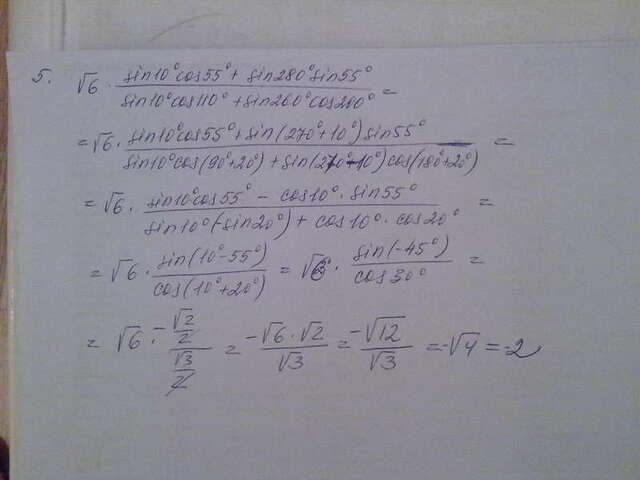 5. √6 · (sin10°cos55° + sin280°sin55°)/(sin10°cos110° + sin260°cos280°) =
= √6 · (sin10°cos55° + sin(270°+10°)sin55°)/(sin10°cos(90°+20°) + sin(270°-10°)cos(180°+20°)) =
= √6 · (sin10°cos55° - cos10°·sin55°)/(sin10°(-sin20°) + cos10°·cos20°) =
= √6 · sin(10°-55°)/cos(10°+20°) = √6 · sin(-45°)/cos30° =
= √6 · (-√2/2)/(√3/2) = -√6·√2/√3 = -√12/√3 = -√4 = -2